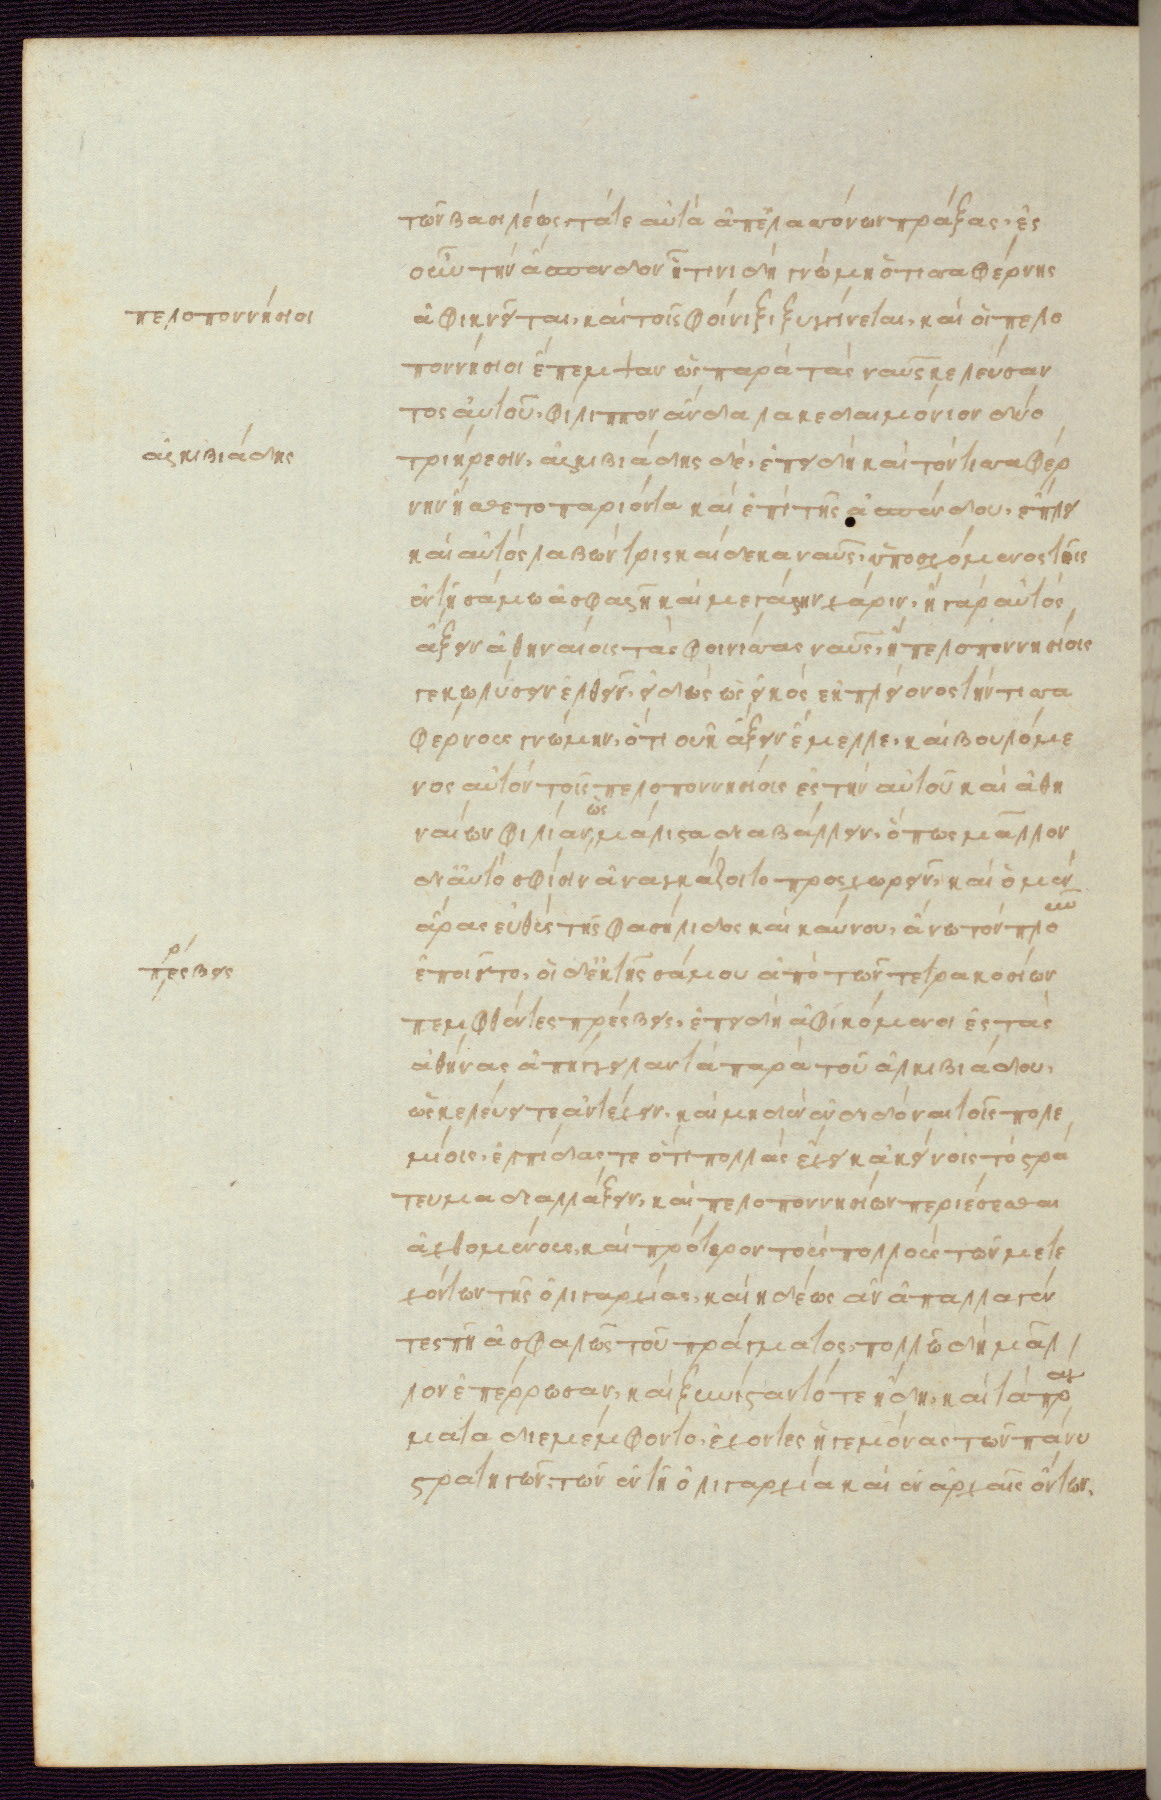 τῶν βασιλέως τάτε αὐτὰ ἀπ' ἐλασσόνων πράξας, ἐς
δ' οὖν τὴν ἄσπενδον ᾗτινι δὴ γνώμῃ ὁ τισσαφέρνης
πελοποννήσιοι
ἀφικνεῖται, καὶ τοῖς φοίνιξι ξυγγίνεται, καὶ οἱ πελο
ποννήσιοι ἔπεμψαν ὡς παρὰ τὰς ναῦς κελεύσαν
τος αὐτοῦ, φίλιππον ἄνδρα λακεδαιμόνιον δύο
ἀλκιβιάδης
τριήρεσιν, ἀλκιβιάδης δὲ, ἐπειδὴ καὶ τὸν τισσαφέρ
νην ᾔσθετο παριόντα καὶ ἐπὶ τῆς ἀσπένδου, ἔπλει
καὶ αὐτὸς λαβὼν τρισκαίδεκα ναῦς, ὑποσχόμενος τοῖς
ἐν τῇ σάμῳ ἀσφαλῆ καὶ μεγάλην χάριν, ἢ γὰρ αὐτὸς
ἄξειν ἀθηναίοις τὰς φοινίσσας ναῦς, ἢ πελοποννησίοις
γε κωλύσειν ἐλθεῖν, εἰδὼς ὡς εἰκὸς ἐκ πλείονος τὴν τισσα
φέρνους γνώμην, ὅτι οὐκ ἄξειν ἔμελλε, καὶ βουλόμε
νος αὐτὸν τοῖς πελοποννησίοις ἐς τὴν αὐτοῦ καὶ ἀθη
ναίων φιλίαν ὡς μάλιστα διαβάλλειν, ὅπως μᾶλλον
δι' αὐτὸ σφίσιν ἀναγκάζοιτο προσχωρεῖν, καὶ ὁ μὲν
ἄρας εὐθὺς τῆς φασήλιδος καὶ καύνου, ἄνω τὸν πλοῦν
πρέσβεις
ἐποιεῖτο, οἱ δ' ἐκ τῆς σάμου ἀπὸ τῶν τετρακοσίων
πεμφθέντες πρέσβεις, ἐπειδὴ ἀφικόμενοι ἐς τὰς
ἀθήνας ἀπήγγειλαν τὰ παρὰ τοῦ ἀλκιβιάδου,
ὡς κελεύει τε ἀντέχειν, καὶ μηδὲν ἐνδιδόναι τοῖς πολε
μίοις, ἐλπίδας τε ὅτι πολλὰς ἔχει κἀκείνοις τὸ στρά
τευμα διαλλάξειν, καὶ πελοποννησίων περιέσεσθαι
ἀχθομένους, καὶ πρότερον τοὺς πολλοὺς τῶν μετε
χόντων τῆς ὀλιγαρχίας, καὶ ἡδέως ἂν ἀπαλλαγέν
τες πῃ ἀσφαλῶς τοῦ πράγματος, πολλῷ δὴ μᾶλ
λον ἐπέρρωσαν, καὶ ξυνίσταντό τε ἤδη, καὶ τὰ πράγ
ματα διεμέμφοντο, ἔχοντες ἡγεμόνας τῶν πάνυ
στρατηγῶν, τῶν ἐν τῇ ὀλιγαρχίᾳ καὶ ἐν ἀρχαῖς ὄντων,